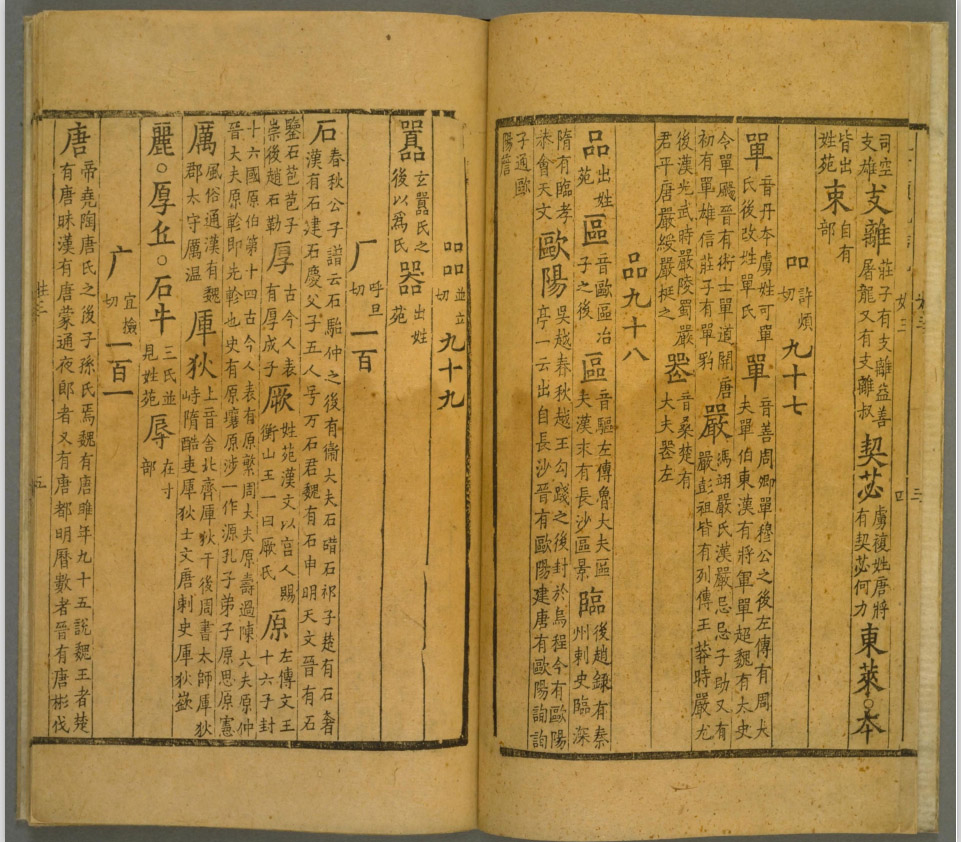 司空支雄支離莊子有支離益善屠龍又有支離叔契苾虜複姓唐將有契苾何力東萊○本
皆出姓苑東自有部
吅許煩切九十七
單音丹本虜姓可單氏後改姓單氏單音善周卿單穆公之後左傳有周大夫單伯東漢有將軍單超魏有太史
令單颺晉有術士單道開唐初有單雄信莊子有單豹嚴馮翊嚴氏漢嚴忌忌子助又有嚴彭祖皆有列傳王莽時嚴尤
後漢光武時嚴陵蜀嚴君平唐嚴綬嚴挺之音桑楚有大夫左
品九十八
品出姓苑區音歐區冶子之後區音驅左傳魯大夫區夫漢末有長沙區景臨後趙錄有秦州刺史臨深
隋有臨孝恭會天文歐陽吳越春秋越王勾踐之後封於烏程今有歐陽亭一云出自長沙晉有歐陽建唐有歐陽詢詢
子通歐陽詹
㗊並立切九十九
囂玄囂氏之後以爲氏器出姓苑
厂呼旦切一百
石春秋公子譜云石駘仲之後有衞大夫石碏石祁子楚有石奢漢有石建石慶父子五人号万石君魏有石申明天文晉有石
鑒石苞苞子崇後趙石勒厚古今人表有厚成子厥姓苑漢文以宮人賜衡山王一曰厥氏原左傳文王十六子封
十六國原伯第十四古今人表有原繁周大夫原壽過陳大夫原仲晉大夫原軫即先軫也史有原壤原涉一作源孔子弟子原思原憲
厲風俗通漢有魏郡太守厲温厙狄上音舍北齊厙狄干後周書太師厙狄峙隋酷吏厙狄士文唐刺史厙狄嶔
麗○厚丘○石牛三氏並見姓苑辱在寸部
广宜撿切一百一
唐帝堯陶唐氏之後子孫氏焉魏有唐雎年九十五說魏王者楚有唐昧漢有唐蒙通夜郎者又有唐都明曆數者晉有唐彬伐